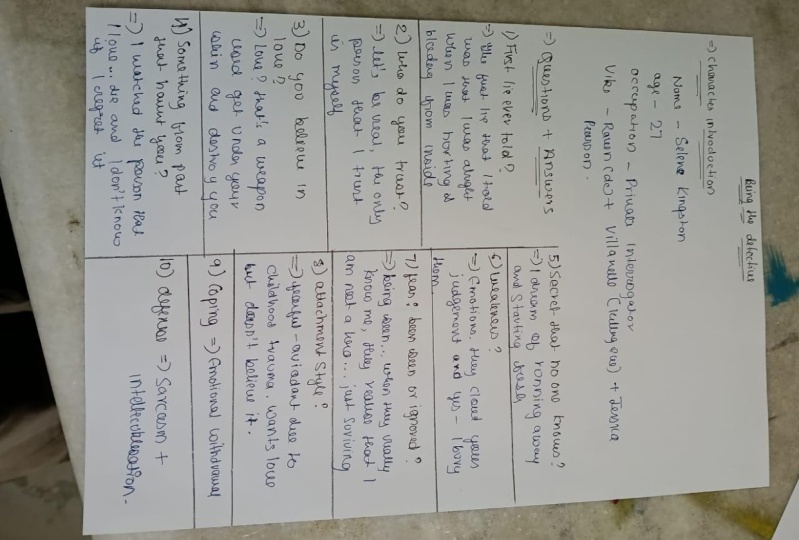 Being the detective
=> character introduction
Name - Selene Kingston
age - 27
occupation - Private Interrogator
Vibe - Raven (dc) + Villanelle (killing eve) + Jessica
Pearson.
=> Questions + Answers
1) First lie ever told?
=> the first lie that I told
was that I was alright
when I was horting &
bleeding from inside
2) who do you trust?
=> let's be real, the only
person that I trust
is myself
3) Do you believe in
love?
=> love? that's a weapon
used get under your
skin and destroy you
4) Something from past
that haunt you?
=> I watched the person that
I love... die and I don't know
if I regret it
5) Secret that no one knows?
=> I dream of running away
and starting fresh
6) weakness?
=> Emotions. they cloud your
judgement and yes - I bury
them.
7) fear? been seen or ignored?
=> being seen... when they really
know me, they realise that I
am not a hero... just surviving
8) attachment style?
=> fearful-aviodant due to
childhood trauma. wants love
but doesn't believe it.
9) Coping => Emotional withdrawal
10) defense => Sarcasm +